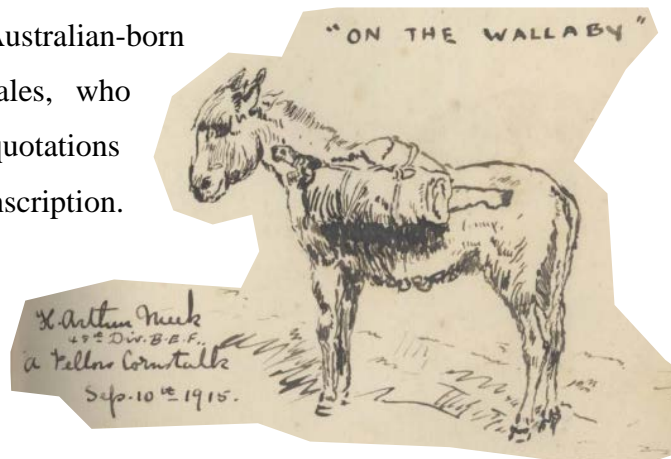 Australian-born
ales, who
quotations
nscription.
"ON THE WALLABY"
H. Arthur Meek
48th Div. B.E.F.
a Fellow Cornstalk
Sep. 10th 1915.